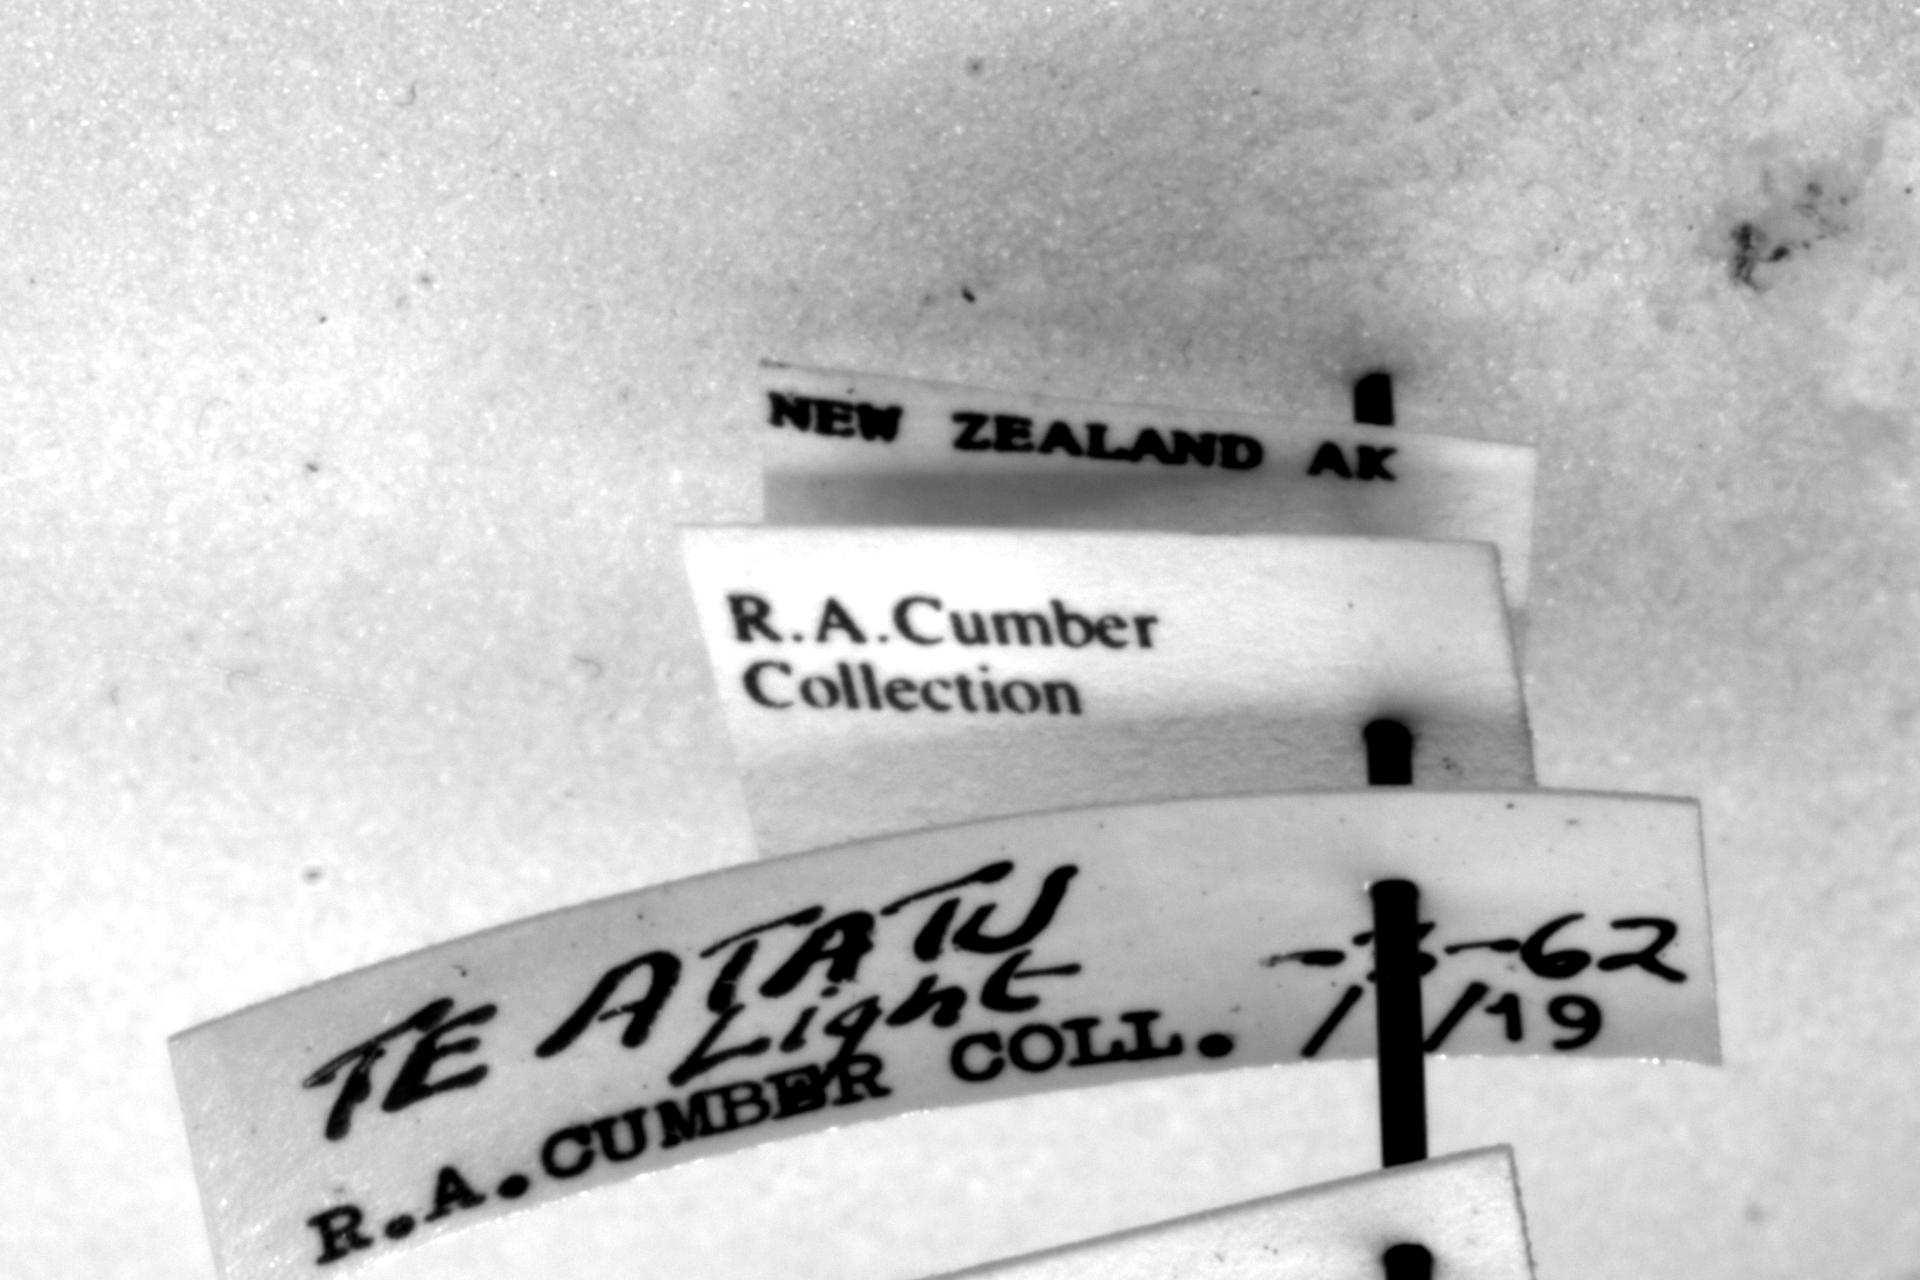 NEW ZEALAND AK
R.A.Cumber
Collection
TE ATATU
Light
-3-62
R.A.CUMBER COLL. / /19